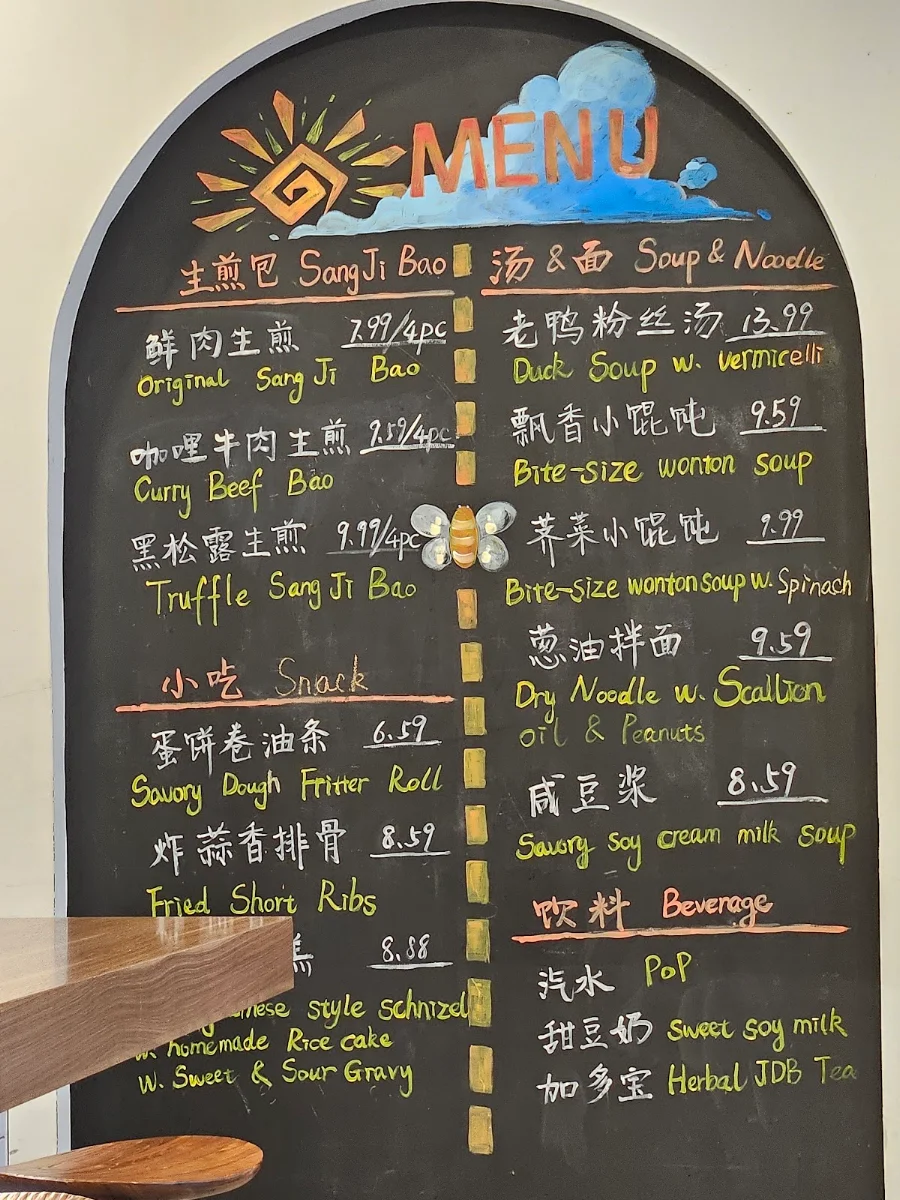 MENU
生煎包 SangJi Bao
鲜肉生煎 7.99/4pc
Original Sang Ji Bao
咖喱牛肉生煎 9.59/4pc
Curry Beef Bao
黑松露生煎 9.99/4pc
Truffle Sang Ji Bao
小吃 Snack
蛋饼卷油条 6.59
Savory Dough Fritter Roll
炸蒜香排骨 8.59
Fried Short Ribs
糕 8.88
style schnizel
w. homemade Rice cake
w. Sweet & Sour Gravy
汤 & 面 Soup & Noodle
老鸭粉丝汤 13.99
Duck Soup w. vermicelli
飘香小馄饨 9.59
Bite-size wonton soup
荠菜小馄饨 9.99
Bite-size wonton soup w. Spinach
葱油拌面 9.59
Dry Noodle w. Scallion
oil & Peanuts
咸豆浆 8.59
Savory soy cream milk soup
饮料 Beverage
汽水 PoP
甜豆奶 sweet soy milk
加多宝 Herbal JDB Tea